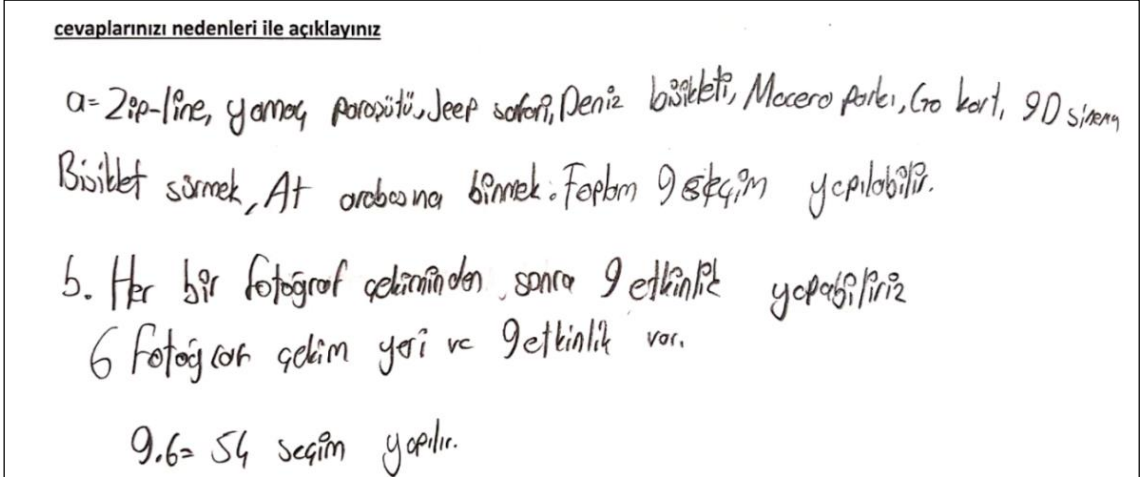 cevaplarınızı nedenleri ile açıklayınız
a= Zip-line, yamaç paraşütü, Jeep safari, Deniz bisikleti, Macera parkı, Go kart, 9D sinema
Bisiklet sürmek, At arabasına binmek. Toplam 9 seçim yapılabilir.
b. Her bir fotoğraf çekiminden sonra 9 etkinlik yapabiliriz
6 fotoğraf çekim yeri ve 9 etkinlik var.
9.6= 54 seçim yapılır.